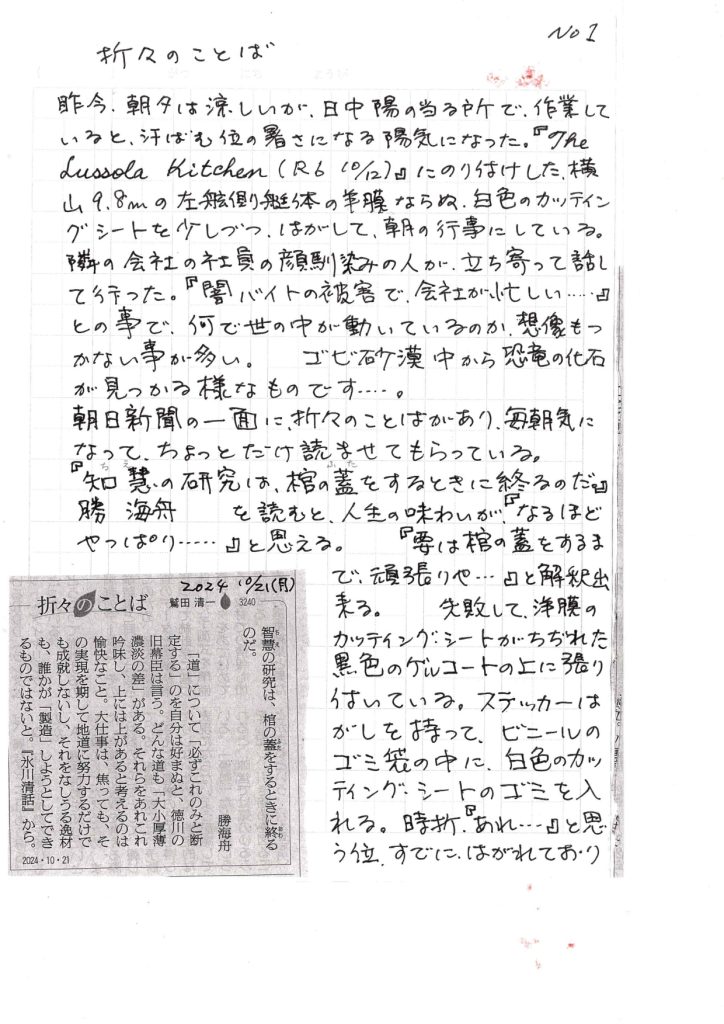 No 1
折々のことば
昨今、朝夕は涼しいが、日中陽の当る所で、作業して
いると、汗ばむ位の暑さになる陽気になった。『The
Lussola Kitchen (R6 10/12)』にのり付けした、横
山9.8mの左舷側艇体の羊膜ならぬ、白色のカッティン
グシートを少しづつ、はがして、朝の行事にしている。
隣の会社の社員の顔馴染みの人が、立ち寄って話し
て行った。『闇バイトの被害で、会社が忙しい……』
との事で、何で世の中が動いているのか、想像もつ
かない事が多い。 ゴビ砂漠中から恐竜の化石
が見つかる様なものです……。
朝日新聞の一面に、折々のことばがあり、毎朝気に
なって、ちょっとだけ読ませてもらっている。
『知慧の研究は、棺の蓋をするときに終るのだ。』
ちえ ふた
勝 海舟 を読むと、人生の味わいが、『なるほど
やっぱり……』と思える。 『要は棺の蓋をするま
で、頑張りや…』と解釈出
来る。 失敗して、洋膜の
カッティング・シートがちぢれた
黒色のゲルコートの上に張り
付いている。ステッカーは
がしを持って、ビニールの
ゴミ袋の中に、白色のカッ
ティング・シートのゴミを入
れる。時折、『あれ……』と思
う位、すでに、はがれており
2024 10/21(月)
折々のことば
鷲田 清一 3240
智慧の研究は、棺の蓋をするときに終る
ちえ ふた おわ
のだ。
勝海舟
「道」について「必ずこれのみと断
定する」のを自分は好まぬと、徳川の
旧幕臣は言う。どんな道も「大小厚薄
濃淡の差」がある。それらをあれこれ
吟味し、上には上があると考えるのは
愉快なこと。大仕事は、焦っても、そ
の実現を期して地道に努力するだけで
も成就しないし、それをなしうる逸材
も、誰かが「製造」しようとしてでき
るものではないと。『氷川清話』から。
2024・10・21